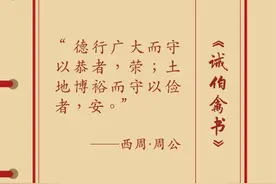 “德行广大而守
以恭者，荣；土
地博裕而守以俭
者，安。”
——西周·周公
《诫伯禽书》